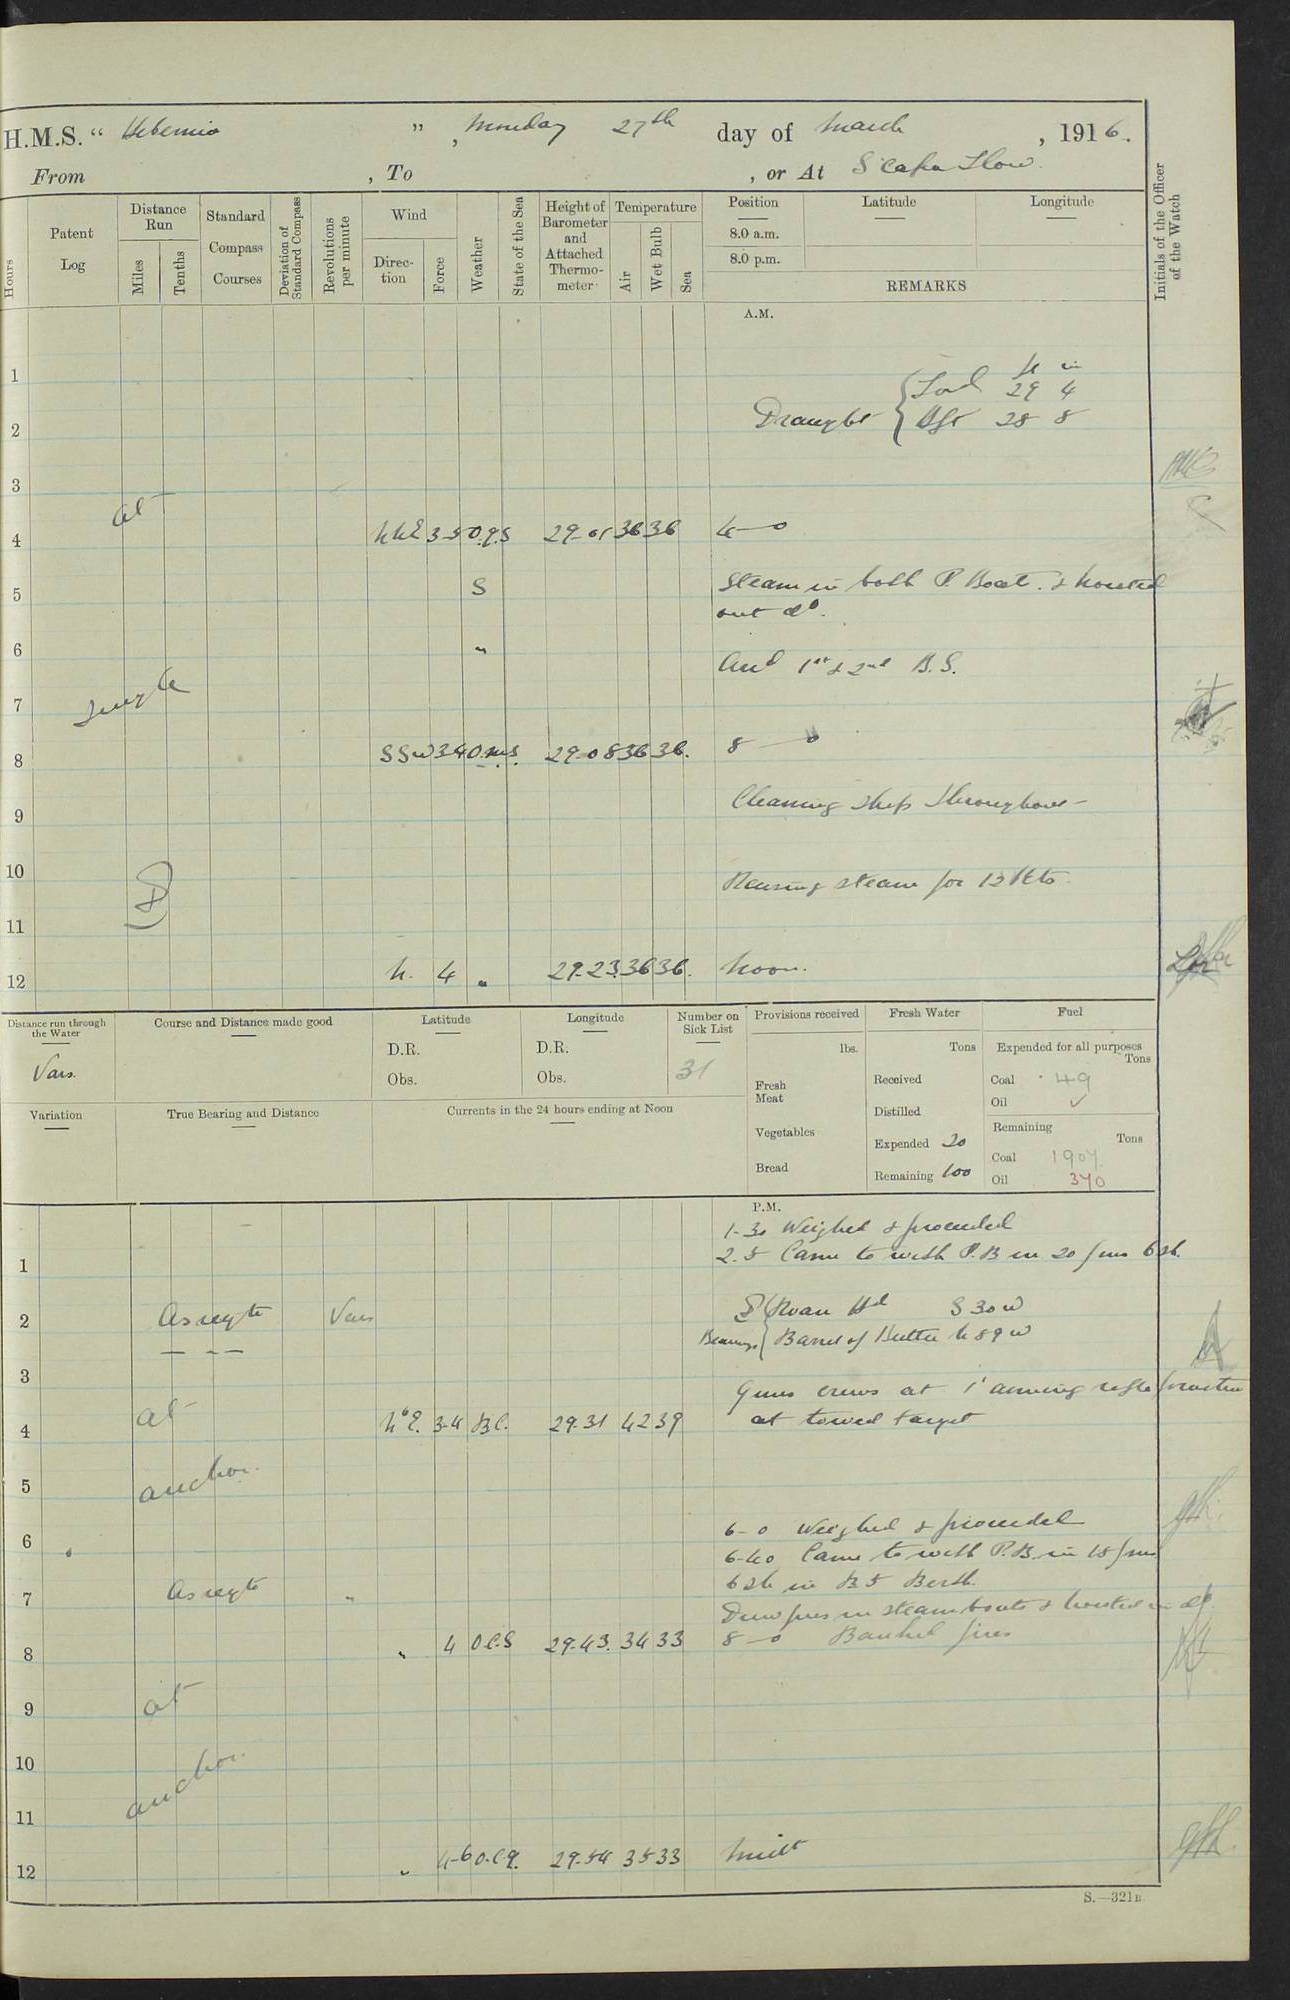 H.M.S. " Hibernia ", Monday 27th day of March, 1916.
From , To , or At Scapa Flow.
Hours
Patent Log
Distance Run
Miles
Tenths
Standard Compass Courses
Deviation of Standard Compass
Revolutions per minute
Wind
Direction
Force
Weather
State of the Sea
Height of Barometer and Attached Thermometer
Temperature
Air
Wet Bulb
Sea
Position
8.0 a.m.
8.0 p.m.
Latitude
Longitude
REMARKS
Initials of the Officer of the Watch
A.M.
1
ft in
Draught { Ford 29 4
2 Aft 28 8
3
at
4 NNE 3-5 O.q.S 29-01 36 36 4—0
5 S Steam in both P. Boat. & hoisted
out do.
6 "
And 1st & 2nd B.S.
7 single
8 SSW 3-4 O.m.s. 29-08 36 36. 8—0
9 Cleaning ship throughout
10 Raising steam for 12 Kts.
11
12 N. 4 " 29-23. 36 36. Noon.
Distance run through the Water
Vars.
Course and Distance made good
Latitude
D.R.
Obs.
Longitude
D.R.
Obs.
Number on Sick List
31
Provisions received
lbs.
Fresh Meat
Vegetables
Bread
Fresh Water
Tons
Received
Distilled
Expended 20
Remaining 100
Fuel
Expended for all purposes
Tons
Coal 49
Oil ✓
Remaining
Tons
Coal 1907
Oil 370
Variation
True Bearing and Distance
Currents in the 24 hours ending at Noon
P.M.
1-30 Weighed & proceeded
1 2.5 Came to with P.B in 20 fms 6 sh.
2 As reqte Vars Roan Hd S 30 W
Bearings { Barrel of Butter N 89 W
3 Guns crews at 1" aiming rifle practice
at at towed target
4 N'E. 3-4 B.C. 29-31 42 39
5 anchor.
6-0 Weighed & proceeded
6 6-40 Came to with P.B. in 18 fms
7 As reqte " 6 sh in B5 Berth.
Drew fires in steamboats & hoisted in do.
8 " 4 O.C.S 29-43. 34 33 8—0 Banked fires
9 at
10
anchor.
11
12 " 4-6 o.c.q. 29-54 35 33 Midt
S.—321B